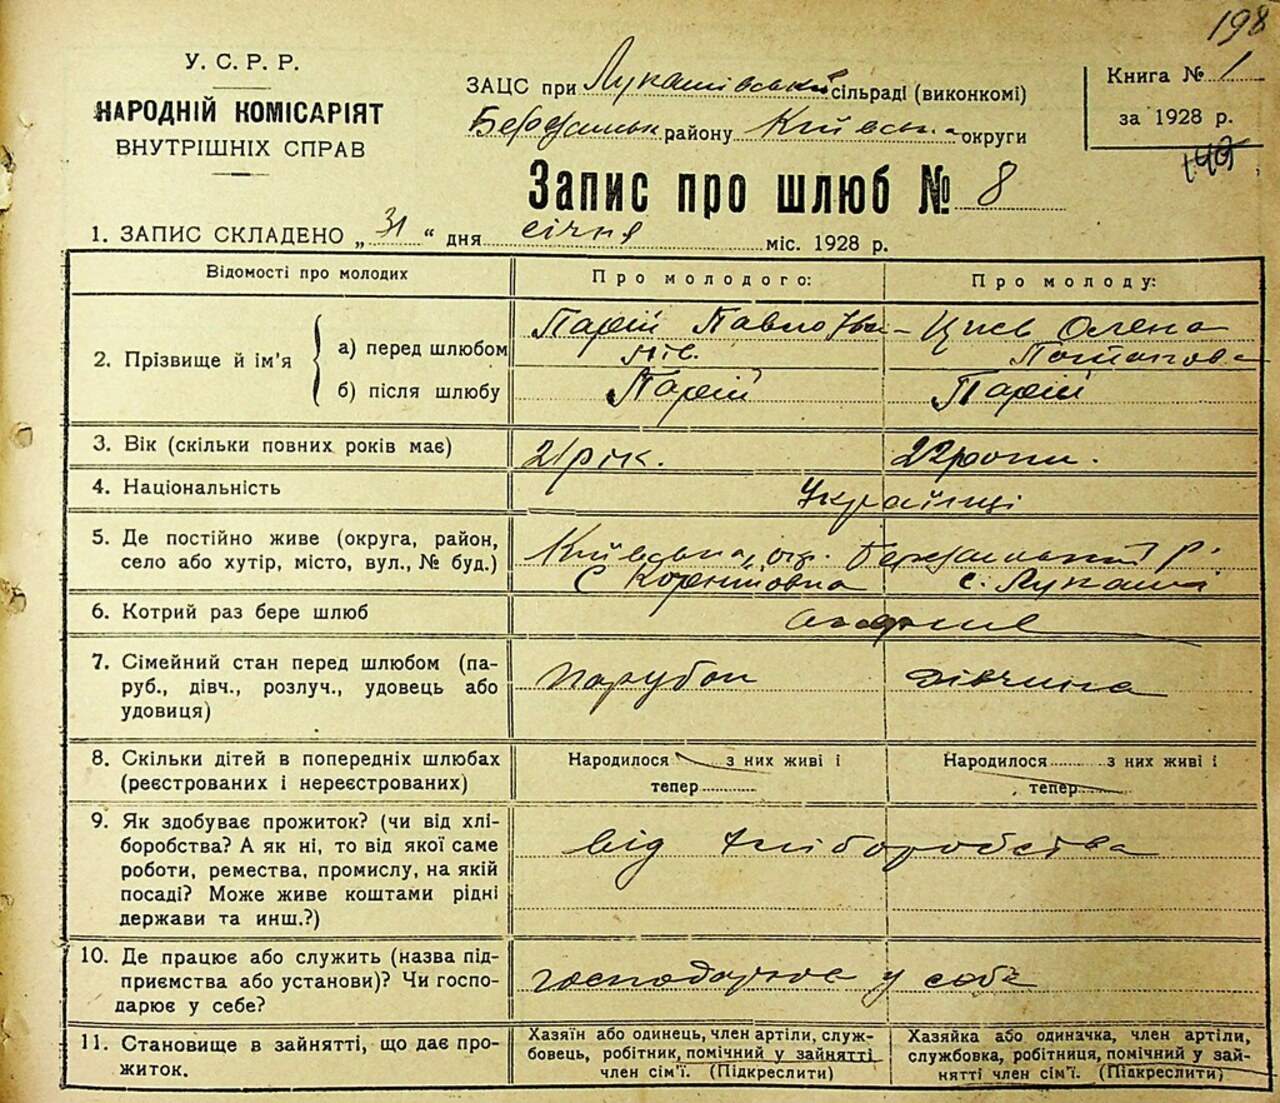 198
У. С. Р. Р.
НАРОДНІЙ КОМІСАРІЯТ
ВНУТРІШНІХ СПРАВ
ЗАЦС при Лукашівській сільраді (виконкомі)
району Київська округи
Книга № 1
за 1928 р.
149
Запис про шлюб № 8
1. ЗАПИС СКЛАДЕНО „ 31 “ дня січня міс. 1928 р.
Відомості про молодих
Про молодого:
Про молоду:
2. Прізвище й ім'я
а) перед шлюбом
Парій Павло Іва-
нів.
Олена
Потапова
б) після шлюбу
Парій
Парій
3. Вік (скільки повних років має)
21 рік.
22 роки.
4. Національність
Українці
5. Де постійно живе (округа, район,
село або хутір, місто, вул., № буд.)
Київська окр. р.
с. с. Лукаші
6. Котрий раз бере шлюб
7. Сімейний стан перед шлюбом (па-
руб., дівч., розлуч., удовець або
удовиця)
парубок
дівчина
8. Скільки дітей в попередніх шлюбах
(реєстрованих і нереєстрованих)
Народилося з них живі і
тепер
Народилося з них живі і
тепер
9. Як здобуває прожиток? (чи від хлі-
боробства? А як ні, то від якої саме
роботи, ремества, промислу, на якій
посаді? Може живе коштами рідні
держави та инш.?)
від хліборобства
10. Де працює або служить (назва під-
приємства або установи)? Чи госпо-
дарює у себе?
господарює у себе
11. Становище в зайнятті, що дає про-
житок.
Хазяїн або одинець, член артіли, служ-
бовець, робітник, помічний у зайнятті
член сім'ї. (Підкреслити)
Хазяйка або одиначка, член артілі,
службовка, робітниця, помічний у зай-
нятті член сім'ї. (Підкреслити)